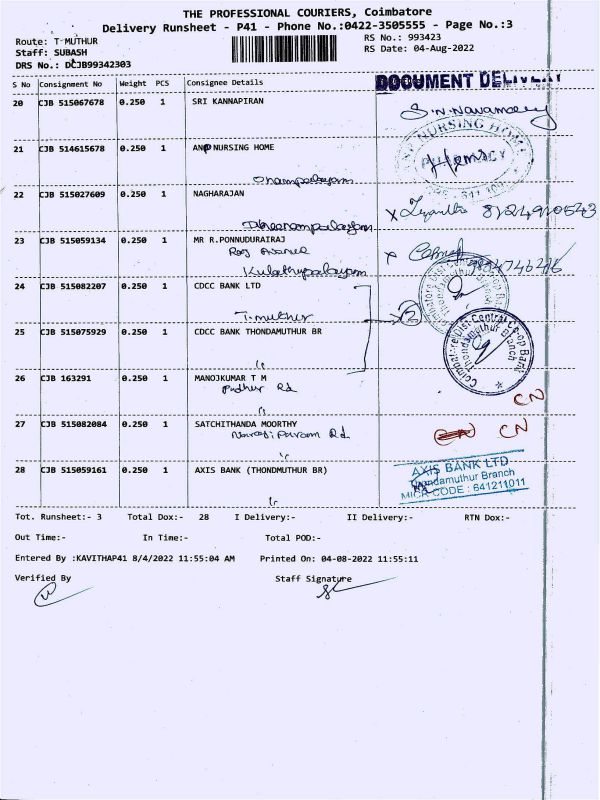 THE PROFESSIONAL COURIERS, Coimbatore
Delivery Runsheet - P41 - Phone No.:0422-3505555 - Page No.:3
Route: T-MUTHUR
RS No.: 993423
Staff: SUBASH
RS Date: 04-Aug-2022
DRS No.: DCJB99342303
S No Consignment No Weight PCS Consignee Details
DOCUMENT DELIVERY
20 CJB 515067678 0.250 1 SRI KANNAPIRAN
21 CJB 514615678 0.250 1 ANP NURSING HOME
NURSING HOME
22 CJB 515027609 0.250 1 NAGHARAJAN
23 CJB 515059134 0.250 1 MR R.PONNUDURAIRAJ
Kulathupalayam
24 CJB 515082207 0.250 1 CDCC BANK LTD
T-muthur
2
25 CJB 515075929 0.250 1 CDCC BANK THONDAMUTHUR BR
Coimbatore Dist Central Co-op Bank
Thondamuthur Branch
26 CJB 163291 0.250 1 MANOJKUMAR T M
Pudhur Rd
CN
27 CJB 515082084 0.250 1 SATCHITHANDA MOORTHY
Rd
CN
28 CJB 515059161 0.250 1 AXIS BANK (THONDMUTHUR BR)
AXIS BANK LTD
Thondamuthur Branch
MICR CODE : 641211011
Tot. Runsheet:- 3 Total Dox:- 28 I Delivery:- II Delivery:- RTN Dox:-
Out Time:- In Time:- Total POD:-
Entered By :KAVITHAP41 8/4/2022 11:55:04 AM Printed On: 04-08-2022 11:55:11
Verified By Staff Signature